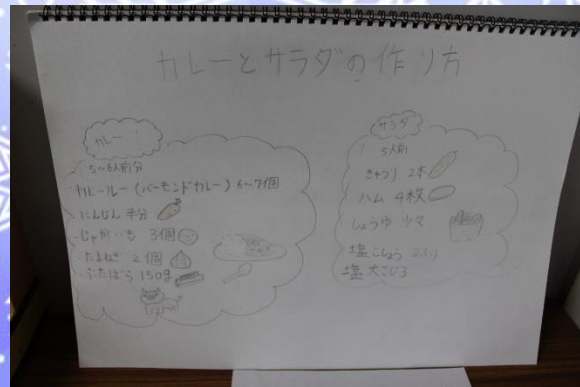 カレーとサラダの作り方
カレー
5〜6人前分
カレールー(バーモンドカレー) 6〜7個
・にんじん 半分
・じゃがいも 3個
・たまねぎ 2個
・ぶたばら 150g
サラダ
5人前
きゅうり 2本
ハム 4枚
しょうゆ 少々
塩こしょう 2ふり
塩 大さじ3